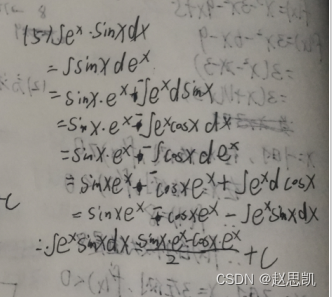 (5) ∫e^x·sinxdx
=∫sinxde^x
=sinx·e^x-∫e^xdsinx
=sinx·e^x-∫e^xcosxdx
=sinx·e^x-∫cosxde^x
=sinxe^x-cosxe^x+∫e^xdcosx
=sinxe^x-cosxe^x-∫e^xsinxdx
+C
∴∫e^xsinxdx=(sinx·e^x-cosxe^x)/2+C
CSDN @赵思凯